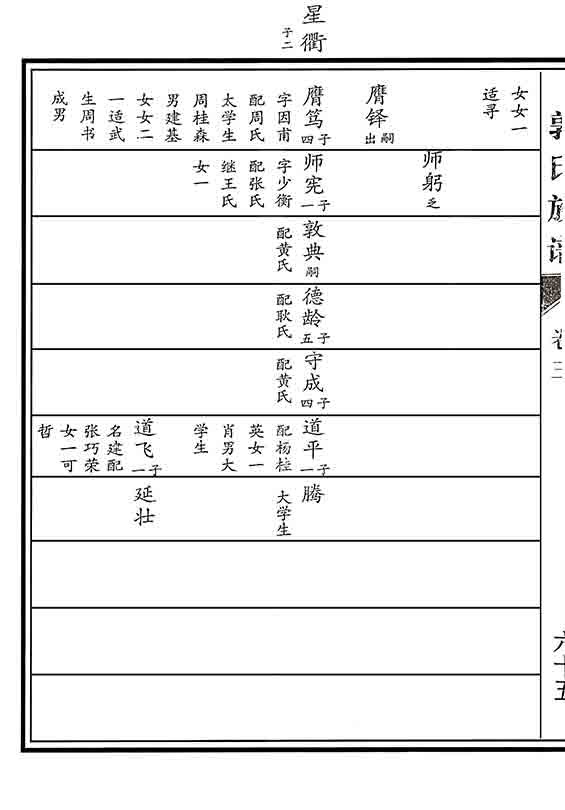 郭氏族谱
六十五
星衢
子二
女女一
适寻
膺铎出嗣
膺笃子四
字因甫
配周氏
太学生
周桂森
男建基
女女二
一适武
生周书
成男
师躬乏
师宪子一
字少衡
配张氏
继王氏
女一
敦典嗣
配黄氏
德龄子五
配耿氏
守成子四
配黄氏
道平子一
配杨桂
英女一
肖男大
学生
道飞子一
名建配
张巧荣
女一可
哲
腾
大学生
延壮